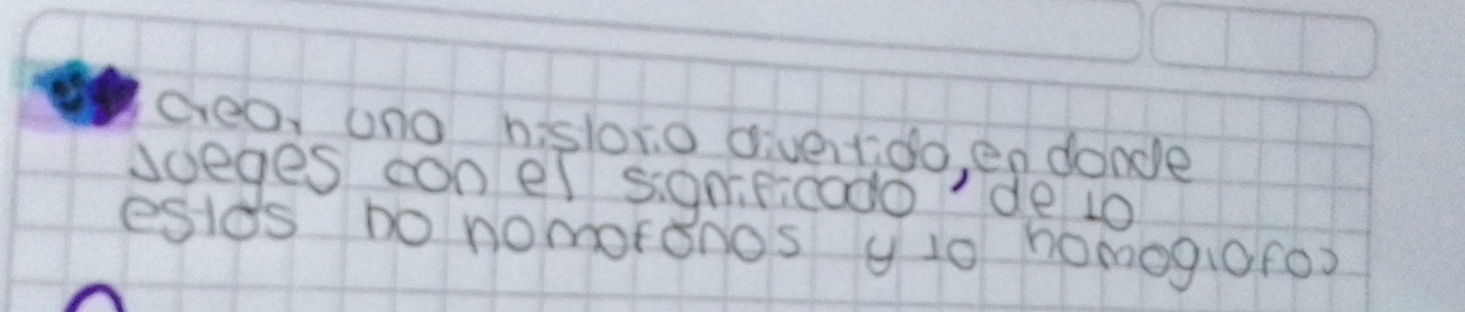 Crea, una historia divertida, en donde
jueges con el significado, de lo
estos no homofonos y lo homografos